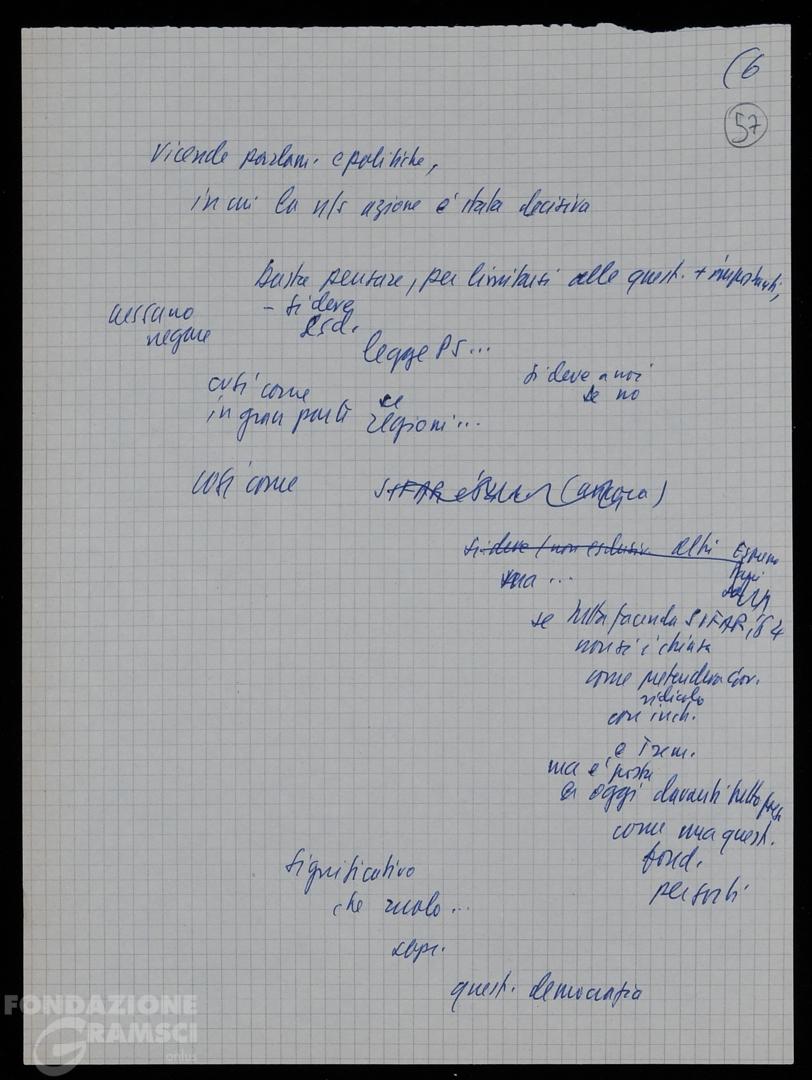 (6
57
Vicende parlam. e politiche,
in cui la n/s azione è stata decisiva
Basta pensare, per limitarsi alle quest. + importanti,
nessuno
negare
- si deve
legge PS...
si deve a noi
se no
così come
in gran parte
se
regioni...
così come
SIFAR
(ancora)
si deve / non esclusiv. altri
ma ...
se tutta facenda SIFAR, '64
non si è chiusa
come pretendeva Gov.
ridicolo
con inch.
e Trem.
ma è posta
oggi davanti tutto paese
come una quest.
fond.
per sorti
significativo
che ruolo...
quest. democrazia
FONDAZIONE
GRAMSCI
onlus